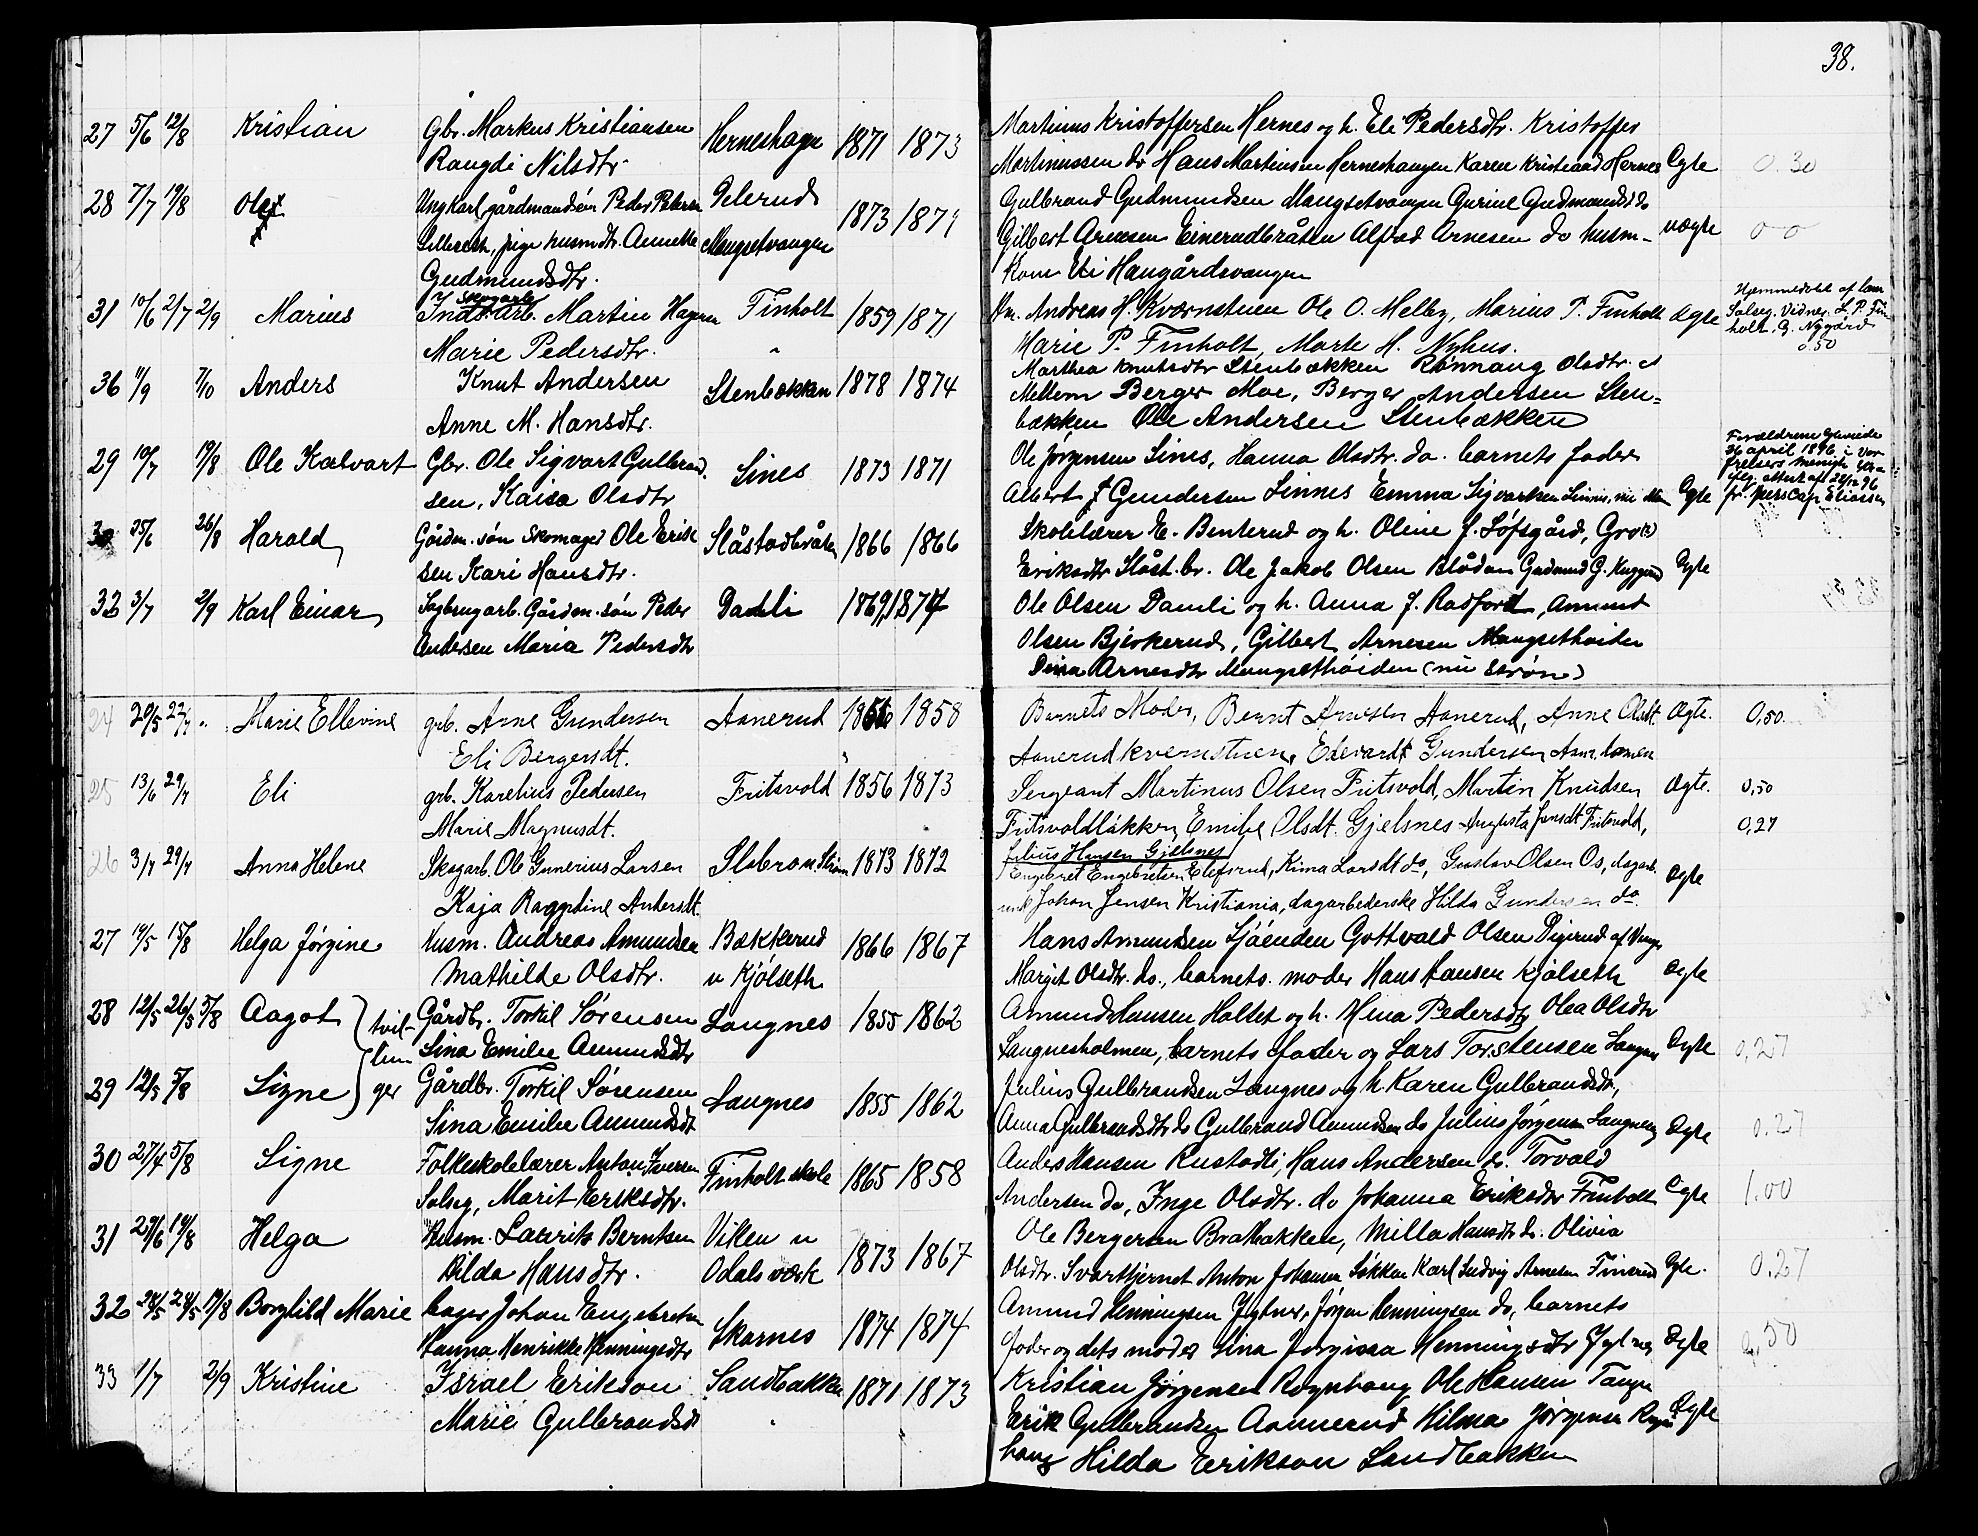 38.
27 5/6 12/8 Kristian Gbr. Markus Kristiansen Herneshagen 1871 1873 Martinius Kristoffersen Hernes og h. Eli Pedersdtr. Kristoffer
Raugdi Nilsdtr. Martinussen do Hans Martinsen Herneshaugen Karen Kristiansd Hernes Egte 0.30
28 7/7 19/8 Ole Ungkarl gårdmandssøn Peder Petersen Gelerud 1873 1874 Gulbrand Gudmundsen Mangsetvangen Gurine Gudmundsd do
pige husmdtr. Annette Mangsetvangen Gilbert Arnesen Einerudbråten Alfred Arnesen do husm- uægte 0 0
Gudmundsdtr. Kone Eli Haugårdsvangen
31 10/6 2/7 2/9 Marius Skogarb. Martin Hagen Finholt 1859 1871 Andreas H. Kværnstuen Ole O. Melby, Marius P. Finholt Ægte Hjemmedøbt af
Solseg. Vidner. L. P. Fin-
holt. G. Nygård
0.50
Marie Pedersdtr. " Marie P. Finholt, Marte H. Nyhus.
36 11/9 7/10 Anders Knut Andersen Stenbækken 1878 1874 Marthea Knutsdtr Stenbækken Rønnaug Olsdtr. 
Mellem Berger Moe, Berger Andersen Sten=
Anne M. Hansdtr. bækken Ole Andersen Stenbækken
29 10/7 19/8 Ole Kalvart Gbr. Ole Sigvart Gulbrand Sines 1873 1871 Ole Jørgensen Sines, Hanna Olsdtr. do. barnets fader
sen, Kaisa Olsdtr Albert J Gundersen Sinnes Emma Sigvartsen Sinnes, Egte
Forældrene
26 april 1896 i Vor
frelsers menigh.
attest af 22/12 96
fr. pers Cap Eliassen
30 25/6 26/8 Harald Gårdm. søn Skomager Ole Erik Slåstadbråten 1866 1866 Skolelærer E. Benterud og h. Oline J. Løfsgård, Gro(?)
sen Kari Hansdtr. Eriksdtr Slåst.br. Ole Jakob Olsen Gudmund G. Kuggerud Egte
32 3/7 2/9 Karl Einar Sagbrugarb. Gårdm. søn Peder Damli 1869 1874 Ole Olsen Damli og h. Anna J. Rasford, Amund
Andersen Maria Pedersdtr Olsen Bjerkerud, Gilbert Arnesen Mangsethøiden
Dina Arnesdtr Mangsethøiden (nu Strøm)
24 20/5 22/7 " Marie Ellevine grb. Arne Gundersen Aanerud 1856 1858 Barnets Moder, Bernt Arnesen Aanerud, Anne Olsdt. Ægte. 0,50
Eli Bergersdt. " Aanerudkvernstuen, Edevardt Gundersen
25 13/6 29/7 Eli grb. Karelius Pedersen Fritsvold 1856 1873 Sergeant Martinus Olsen Fritsvold, Martin Knudsen Ægte. 0,50
Marie Magnusdt. Fritsvoldløkken, Emilie Olsdt. Gjelsnes Augusta Jensdt Fritsvold, 0,27
Julius Hansen Gjelsnes
26 3/7 29/7 Anna Helene Skogarb. Ole Gunerius Larsen Slobraa. Strøm 1873 1872 Engebret Engebretsen Elefsrud, Kima Larsdt do, Gustav Olsen Os, dagarb. Ægte
Kaja Ragndine Andersdt. Johan Jensen Kristiania, dagarbederske Hilda Gundersen do
27 19/5 15/8 Helga Jørgine Husm. Andreas Amundsen Bækkerud 1866 1867 Hans Amundsen Sjøenden Gottvald Olsen Digerud af Vinger
Mathilde Olsdtr. u Kjølseth Margit Olsdtr. do., barnets. moder Hans Hansen Kjølseth Ægte
28 12/5 26/5 5/8 Aagot Gårdbr. Torkil Sørensen Langnes 1855 1862 Amund Hansen Holtet og h. Mina Pedersdtr Olea Olsdtr
tvil-
lin
ger
Sina Emilie Amundsdtr Langnesholmen, barnets fader og Lars Torstensen Langnes Ægte 0,27
29 12/5 5/8 Signe Gårdbr. Torkil Sørensen Langnes 1855 1862 Julius Gulbrandsen Langnes og h. Karen Gulbrandsdtr,
Sina Emilie Amundsdt Anna Gulbrandsdtr do Gulbrand Amundsen do Julius Jørgensen Langnes Ægte 0.27
30 27/4 5/8 Signe Folkeskolelærer Anton Iversen Finholt skole 1865 1858 Anders Hansen Rustadli, Hans Andersen do. Torvald
Solseg, Marit Eriksdtr. Andersen do, Inge Olsdtr. do Johanna Eriksdtr Finholt Egte 1.00
31 27/6 19/8 Helga Husm. Laurits Berntsen Viken u 1873 1867 Ole Bergersen Bratbakken, Milla Hansdtr do. Olivia
Hilda Hansdtr. Odalsværk Olsdtr. Svarttjernet Anton Johansen Løkken Karl Ludvig Arnesen Finerud Egte. 0.27
32 24/5 24/5 19/8 Borghild Marie bager Johan Engebretsen Skarnes 1874 1874 Amund Henningsen Jyltnes, Jørgen Henningsen do, barnets
Hanna Henrikke Henningsdtr fader og dets moder Sina Jørgine Henningsdtr Ægte 0,50
33 1/7 2/9 Kristine Israel Erikson Sandbakken 1871 1873 Kristian Jørgensen Rognhaug Ole Hansen Tangen
Marie Gulbrandsdt " Erik Gulbrandsen Aamerud Hilma Jørgensen Rogn Egte
haug Hilda Erikson Sandbakken